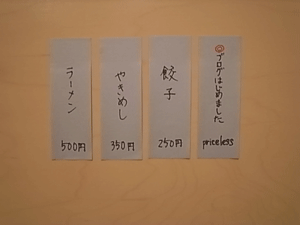 ラーメン
500円
やきめし
350円
餃子
250円
◎ブログはじめました
priceless